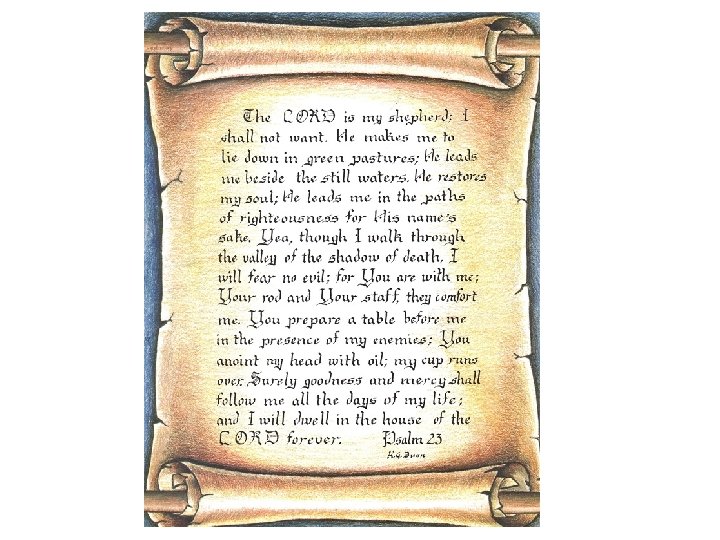 The LORD is my shepherd; I
shall not want. He makes me to
lie down in green pastures; He leads
me beside the still waters. He restores
my soul; He leads me in the paths
of righteousness for His name's
sake. Yea, though I walk through
the valley of the shadow of death, I
will fear no evil; for You are with me;
Your rod and Your staff, they comfort
me. You prepare a table before me
in the presence of my enemies; You
anoint my head with oil; my cup runs
over. Surely goodness and mercy shall
follow me all the days of my life;
and I will dwell in the house of the
LORD forever. Psalm 23